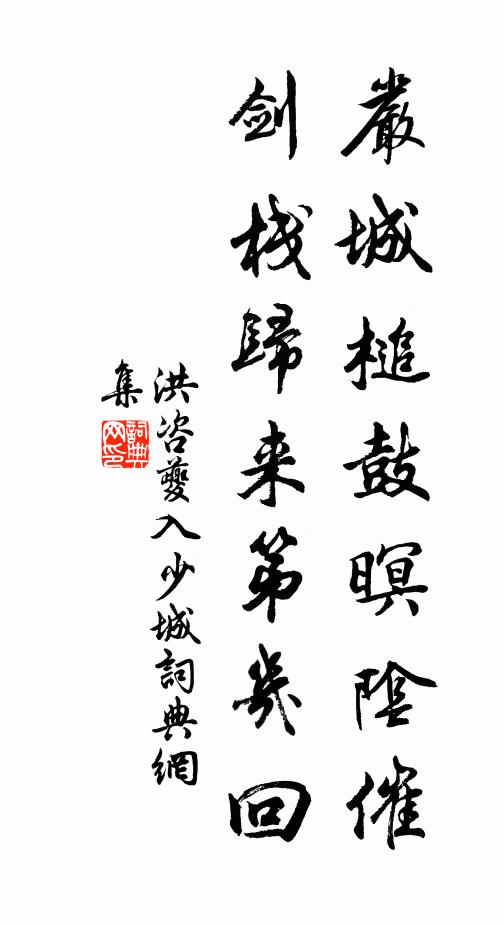 嚴城槌鼓暝陰催
劍棧歸来第幾回
洪咨夔入少城詞典網
集
詞典网印